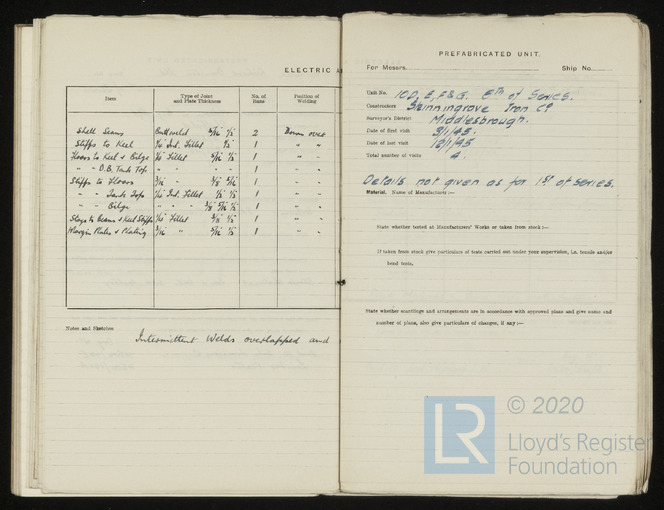 ELECTRIC
Item Type of Joint and Plate Thickness No. of Runs Position of Welding
Shell Seams Buttweld 5/16 1/2 2 Down over
Stiffs to Keel 1/4 Int. Fillet 1/2 1 " "
Floors to Keel & Bilge 1/4 Fillet 5/16 1/2 1 " "
" " D.B. Tank Top " " 1 " "
Stiffs to Floors 3/16 " 3/8 5/16 1 " "
" " Tank Top Int. Fillet 1 " "
" " Bilge " " 1 " "
Stays to Beams & Keel Stiffs Fillet 3/8 1/2 1 " "
Margin Plates & Plating 3/16 " 5/16 1/2 1 " "
Notes and Sketches
Intermittent Welds overlapped and
PREFABRICATED UNIT.
For Messrs. Ship No.
Unit No. 10D, E, F & G. 6th of Series.
Constructors Skinningrove Iron Co
Surveyor's District Middlesbrough.
Date of first visit 3/1/45.
Date of last visit 12/1/45
Total number of visits 4.
Details not given as for 1st of series.
Material. Name of Manufacturer:—
State whether tested at Manufacturers' Works or taken from stock:—
If taken from stock give particulars of tests carried out under your supervision, i.e. tensile and/or
bend tests.
State whether scantlings and arrangements are in accordance with approved plans and give name and
number of plans, also give particulars of changes, if any:—
© 2020
LR
Lloyd's Register
Foundation